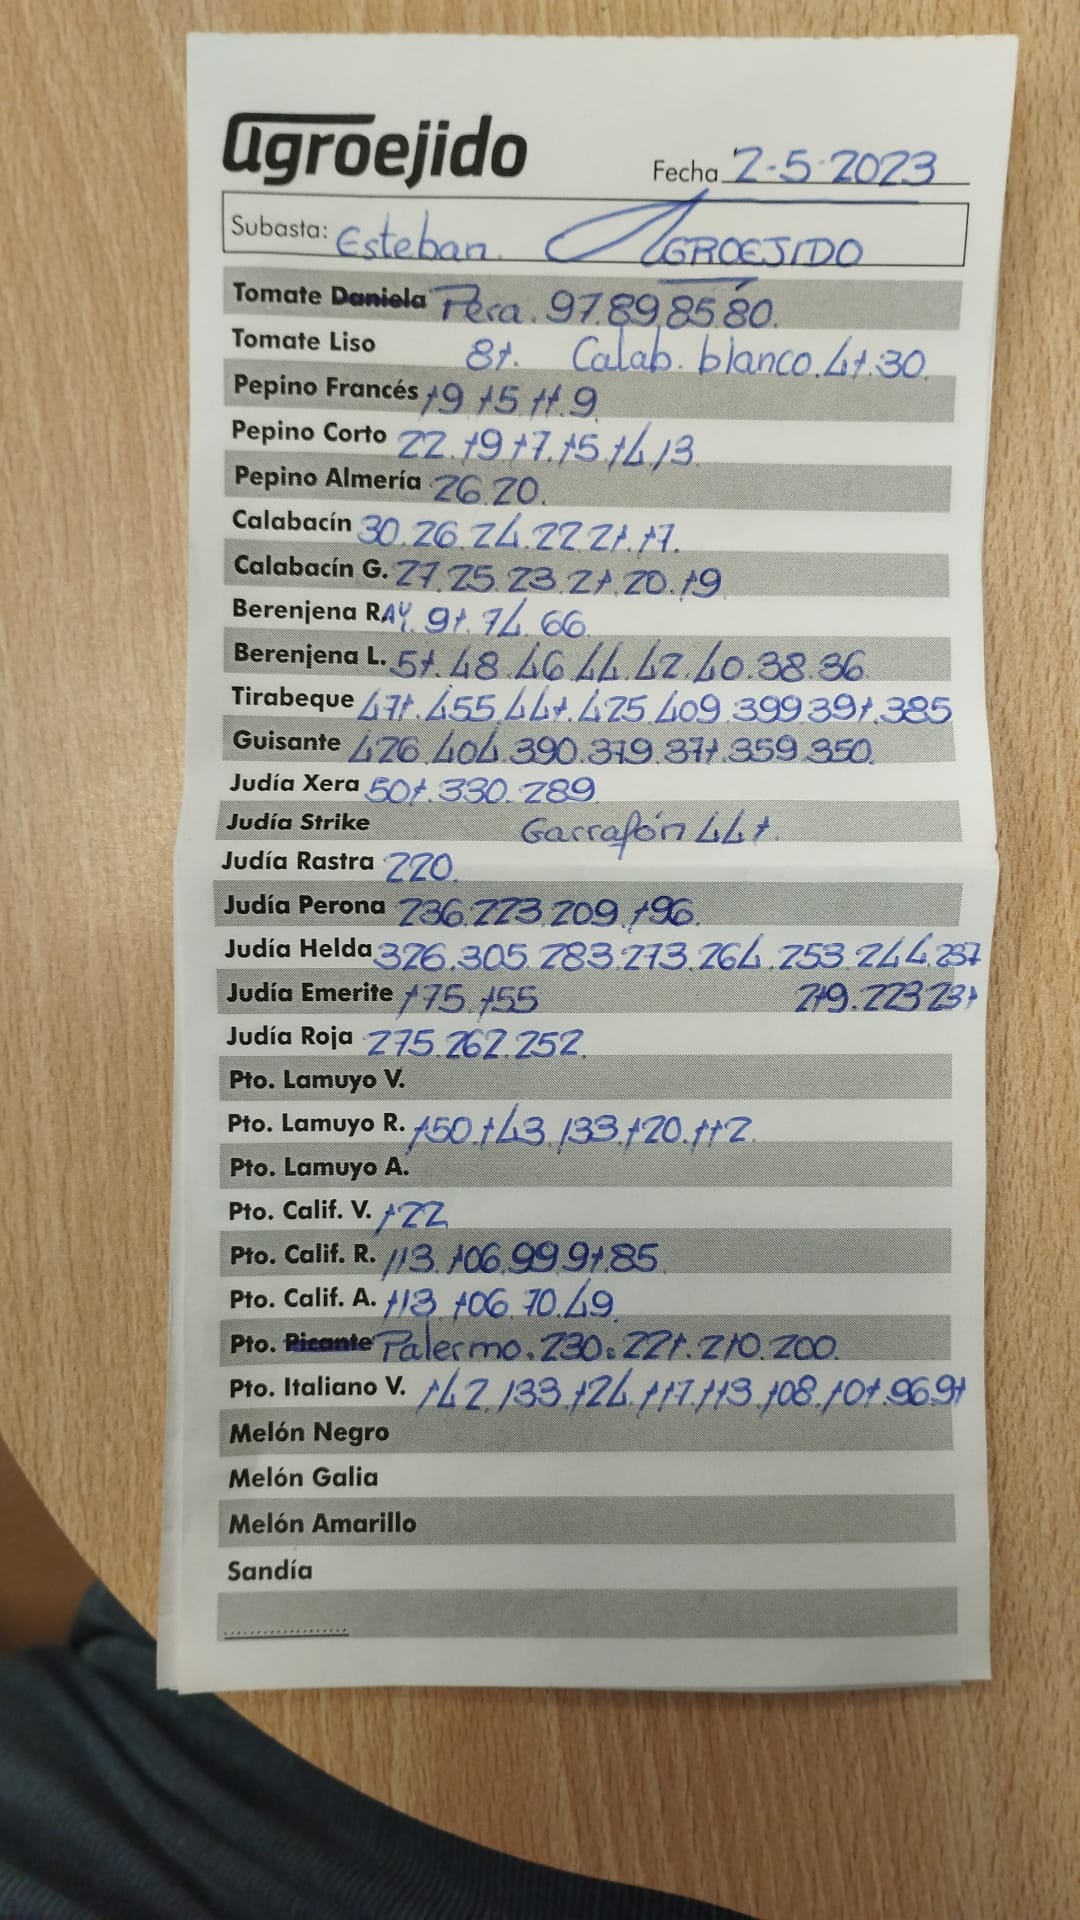 agroejido
Fecha 2-5-2023
Subasta: Esteban. AGROEJIDO
Tomate Daniela Pera. 97.89.85.80.
Tomate Liso 81. Calab. blanco. 41.30.
Pepino Francés 19 15 11.9
Pepino Corto 22.19.17.15.14.13.
Pepino Almería 26.20.
Calabacín 30.26.24.22.21.17.
Calabacín G. 27.25.23.21.20.19
Berenjena RAY. 91.74.66.
Berenjena L. 51.48.46.44.42.40.38.36
Tirabeque 471.455.441.425.409.399.391.385
Guisante 426.404.390.379.371.359.350.
Judía Xera 501.330.289.
Judía Strike Garrafón 441.
Judía Rastra 220.
Judía Perona 236.223.209.196.
Judía Helda 326.305.283.273.264.253.244.237
Judía Emerite 175.155 219.223 231
Judía Roja 275.262.252.
Pto. Lamuyo V.
Pto. Lamuyo R. 150.143.133.120.112.
Pto. Lamuyo A.
Pto. Calif. V. 122
Pto. Calif. R. 113.106.99.91.85
Pto. Calif. A. 113 106.70.49.
Pto. Picante Palermo. 230.221.210.200.
Pto. Italiano V. 142.133.124.117.113.108.101.96.91
Melón Negro
Melón Galia
Melón Amarillo
Sandía